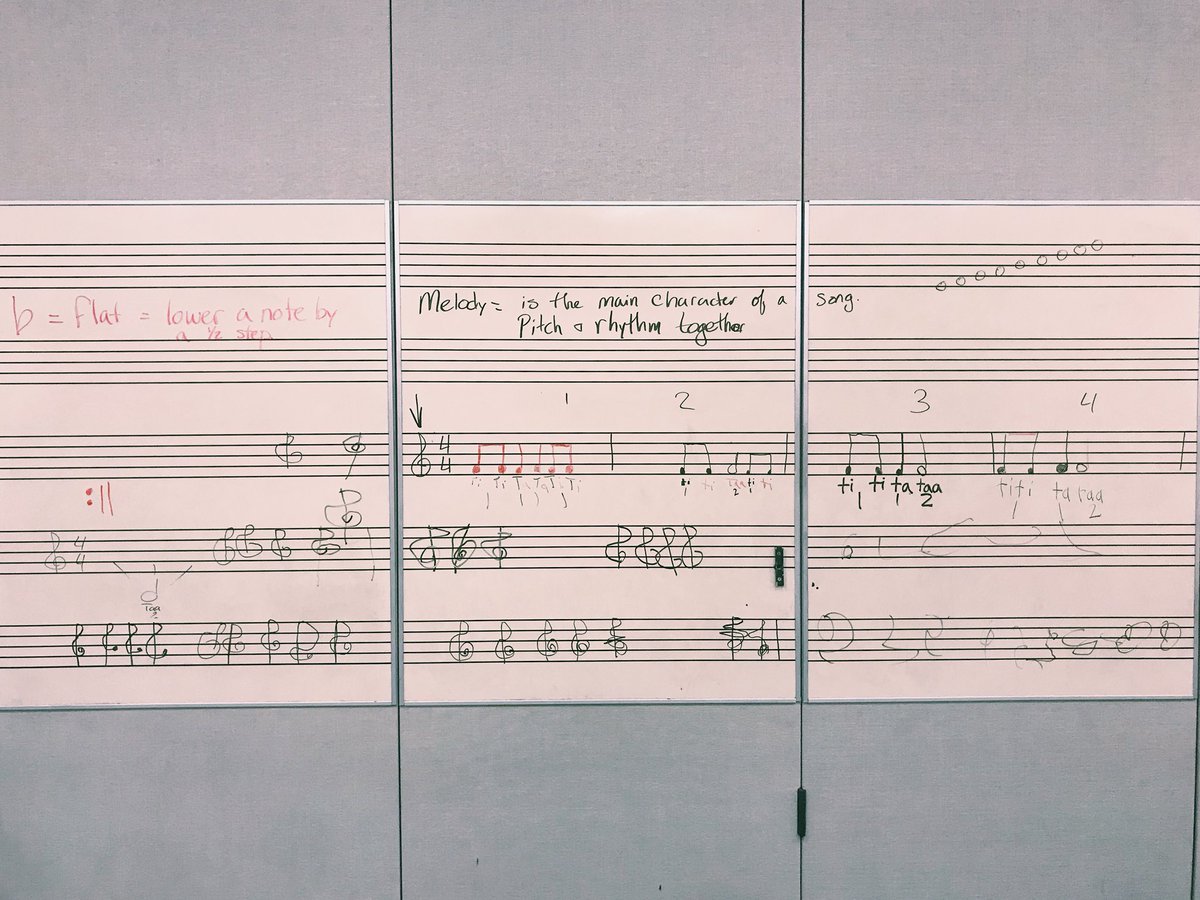 b = flat = lower a note by
a 1/2 step
Melody = is the main character of a song.
Pitch & rhythm together
1 2 3 4
4
4
ti Ti Ta Ti
1 1 1
ti ti taa ti ti
1 2 1
ti ti ta taa
1 1 2
ti ti ta taa
1 1 2
4
4
Taa
2